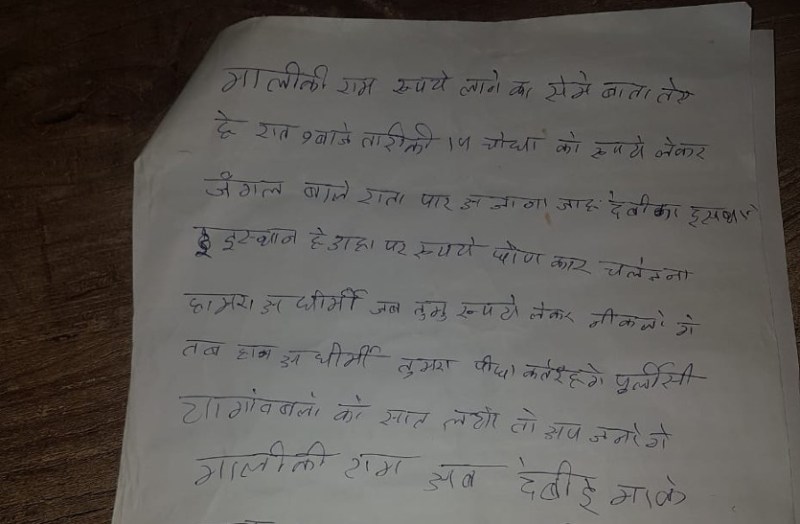 मालीकी राम रुपये लाने का सेमे बाता तेरु
हे रात 9 बाजे तारीकी 14 चोधा को रुपये लेकर
जँगल बाले राता पार अ जाना जाह देबी का इसथा
इस्थान हे अहा पर रुपये पोण कार चलेंना
हामरा अ धीमीँ जब तुमु रुपये लेकर नीकलो गे
तब हाम अ धीमीँ तुमरा पीछा कतेरहगे पुलीसी
या गांव बालो को सात लये तो अप जनो गे
मालीकी राम अब देबीई माके